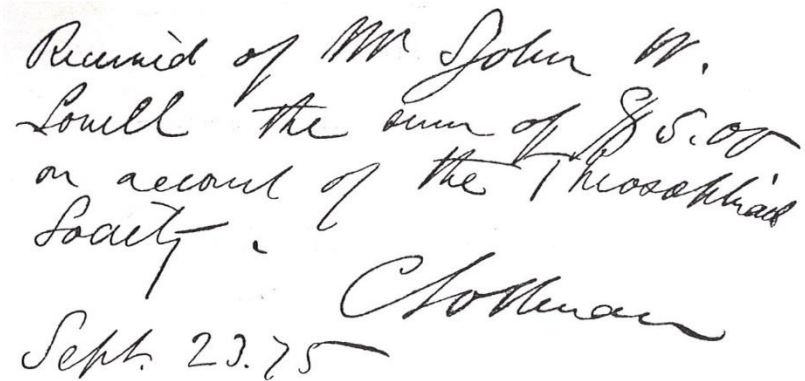 Received of Mr John W.
Lovell the sum of $5.00
on account of the Theosophical
Society.
C Sotheran
Sept. 23.75